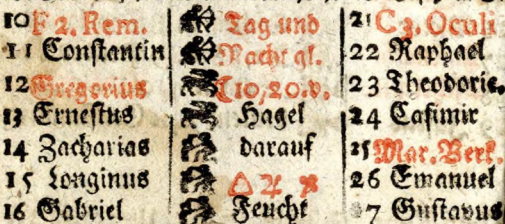 10 F 2. Rem. Tag und 21 C 3. Oculi
11 Constantin Nacht gl. 22 Raphael
12 Gregorius ☾10,20.v. 23 Theodoric.
13 Ernestus Hagel 24 Casimir
14 Zacharias darauf 25 Mar. Verk.
15 Longinus △ ♃ 26 Emanuel
16 Gabriel Feucht 27 Gustavus